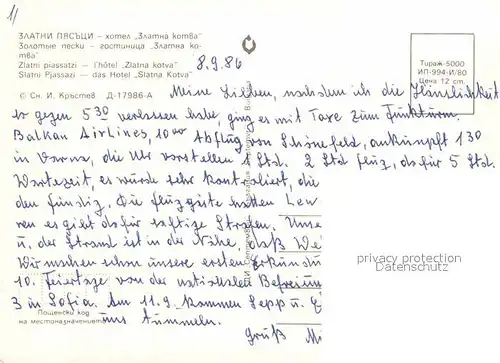 1/
ЗЛАТНИ ПЯСЪЦИ – хотел „Златна котва"
Золотые пески – гостиница „Златна ко-
тва"
Zlatni piassatzi – l'hôtel „Zlatna kotva"
Slatni Pjassazi – das Hotel „Slatna Kotva"
© Сн. И. Кръстев Д-17986-А
8.9.86
Тираж-5000
ИП-994-И/80
Цена 12 cm.
Meine Lieben, nachdem ich die Häuslichkeit
gegen 5 30 verlassen habe, ging es mit Taxe zum Funkturm.
Balkan Airlines, 10 00 Abflug von Schönefeld, Ankunft 130
in Varna, die Uhr vorstellen 1 Std. 2 Std Flug, dafür 5 Std.
Wartezeit, es wurde sehr kontrolliert, die
den fündig. Die Fluggäste hatten
ren es gibt dafür saftige Strafen. Unse
u. der Strand ist in der Nähe, daß We
Wir machen schon unsere ersten Erkund
10. Feiertage von der nationalen Befreiun
3 in Sofia. Am 11.9. kommen Sepp u.
uns tummeln.
Gruß M
Пощенски код
на местоназначението
privacy protection
Datenschutz